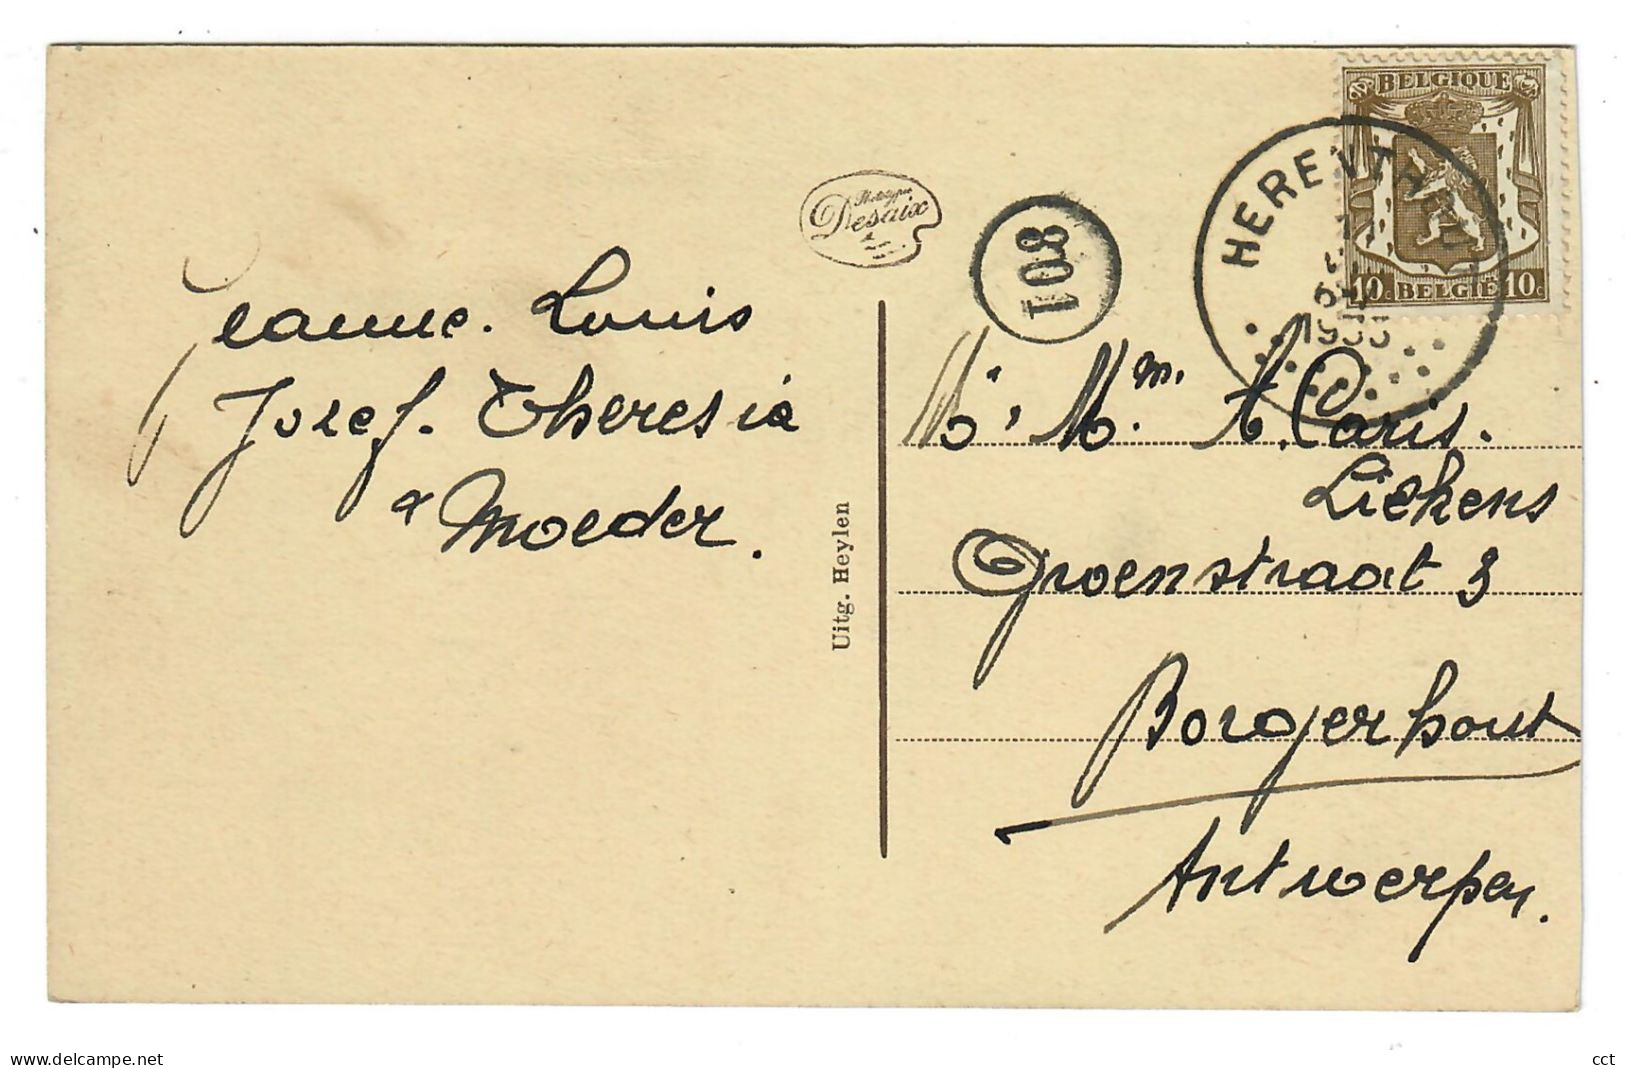 Jeanne. Louis
Josef. Theresia
& Moeder.
Uitg. Heylen
Desaix
108
BELGIQUE
10c BELGIË 10c
HERENTHOUT
Mr. Mm. A. Caris.
Liekens
Groenstraat 3
Borgerhout
Antwerpen.
delcampe.net
cct